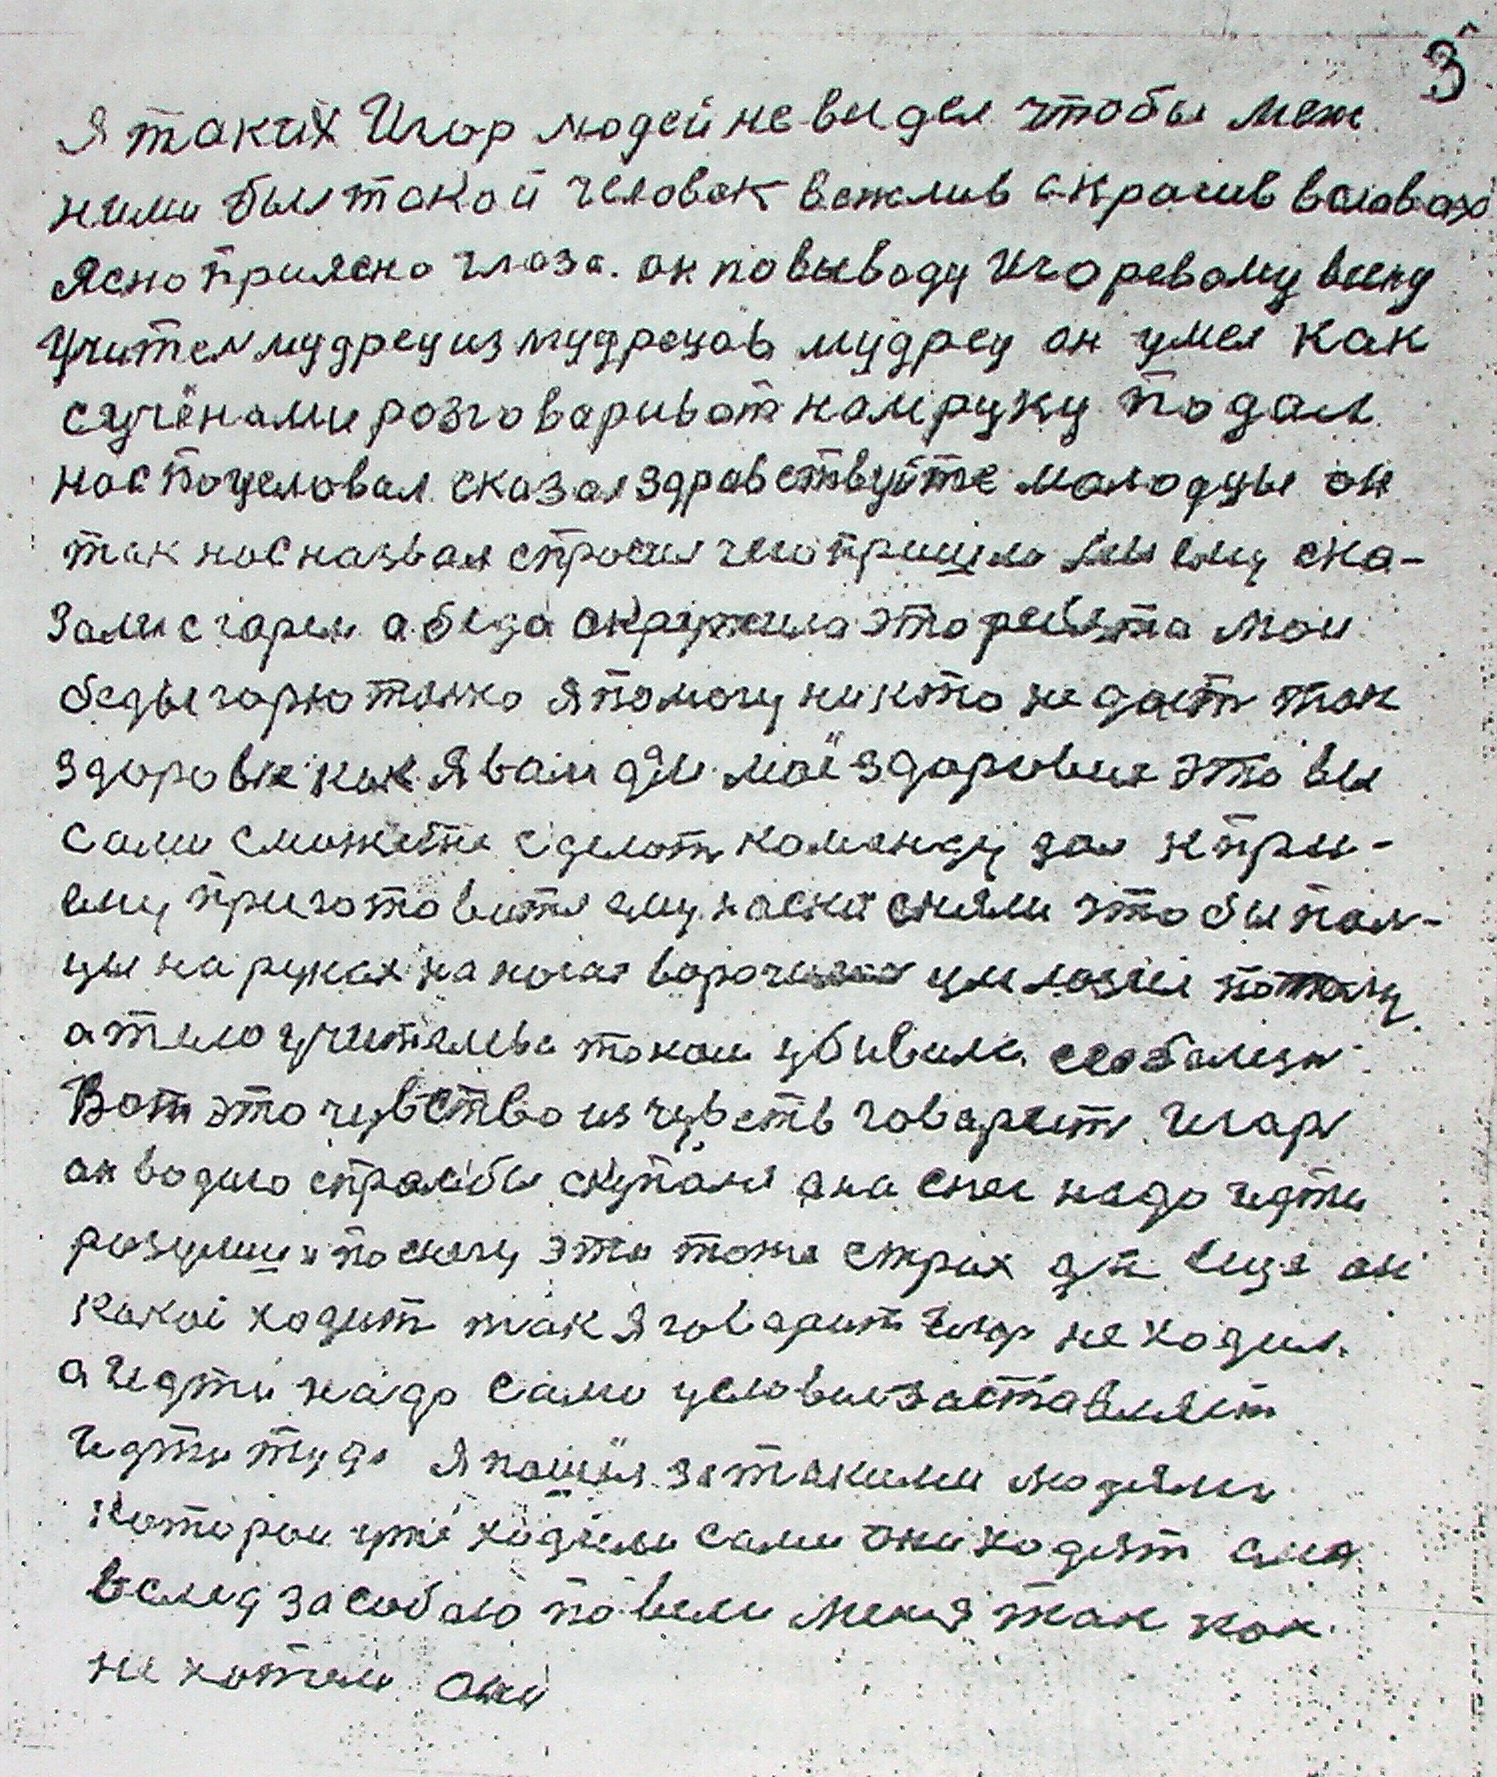 3
Я таких Игор людей не видел чтобы меж
ними был такой человек вежлив а красив в словах
Ясно приясно глаза. он по выводу Игоревому виду
Учител мудрец из мудрецов мудрец он умел как
с учёнами розговариват нам руку подал
нас поцеловал сказал здравствуйте молодцы он
так нас назвал спросил чего пришли мы ему ска-
зали с гарем а беда окружила это ребята мои
беды горю толко я помогу никто не даст так
здоровье как я вам дам моё здоровие это вы
сами сможете сделат команду дал к при-
ему приготовитя ему носки сняли чтобы пал-
цы на руках на ногах
а тело учителево током убивала
Вот это чувство из чувств говарит Игар
он водою купаня она снег надо идти
розумши по снегу это тоже страх да еще он
какой ходит так я говарит Игар не ходил.
а идти надо само условие заставляет
идти туда я пошёл за такими людями
которои уже ходили сами они ходят
вслед за собою повели меня так как
не хотели они